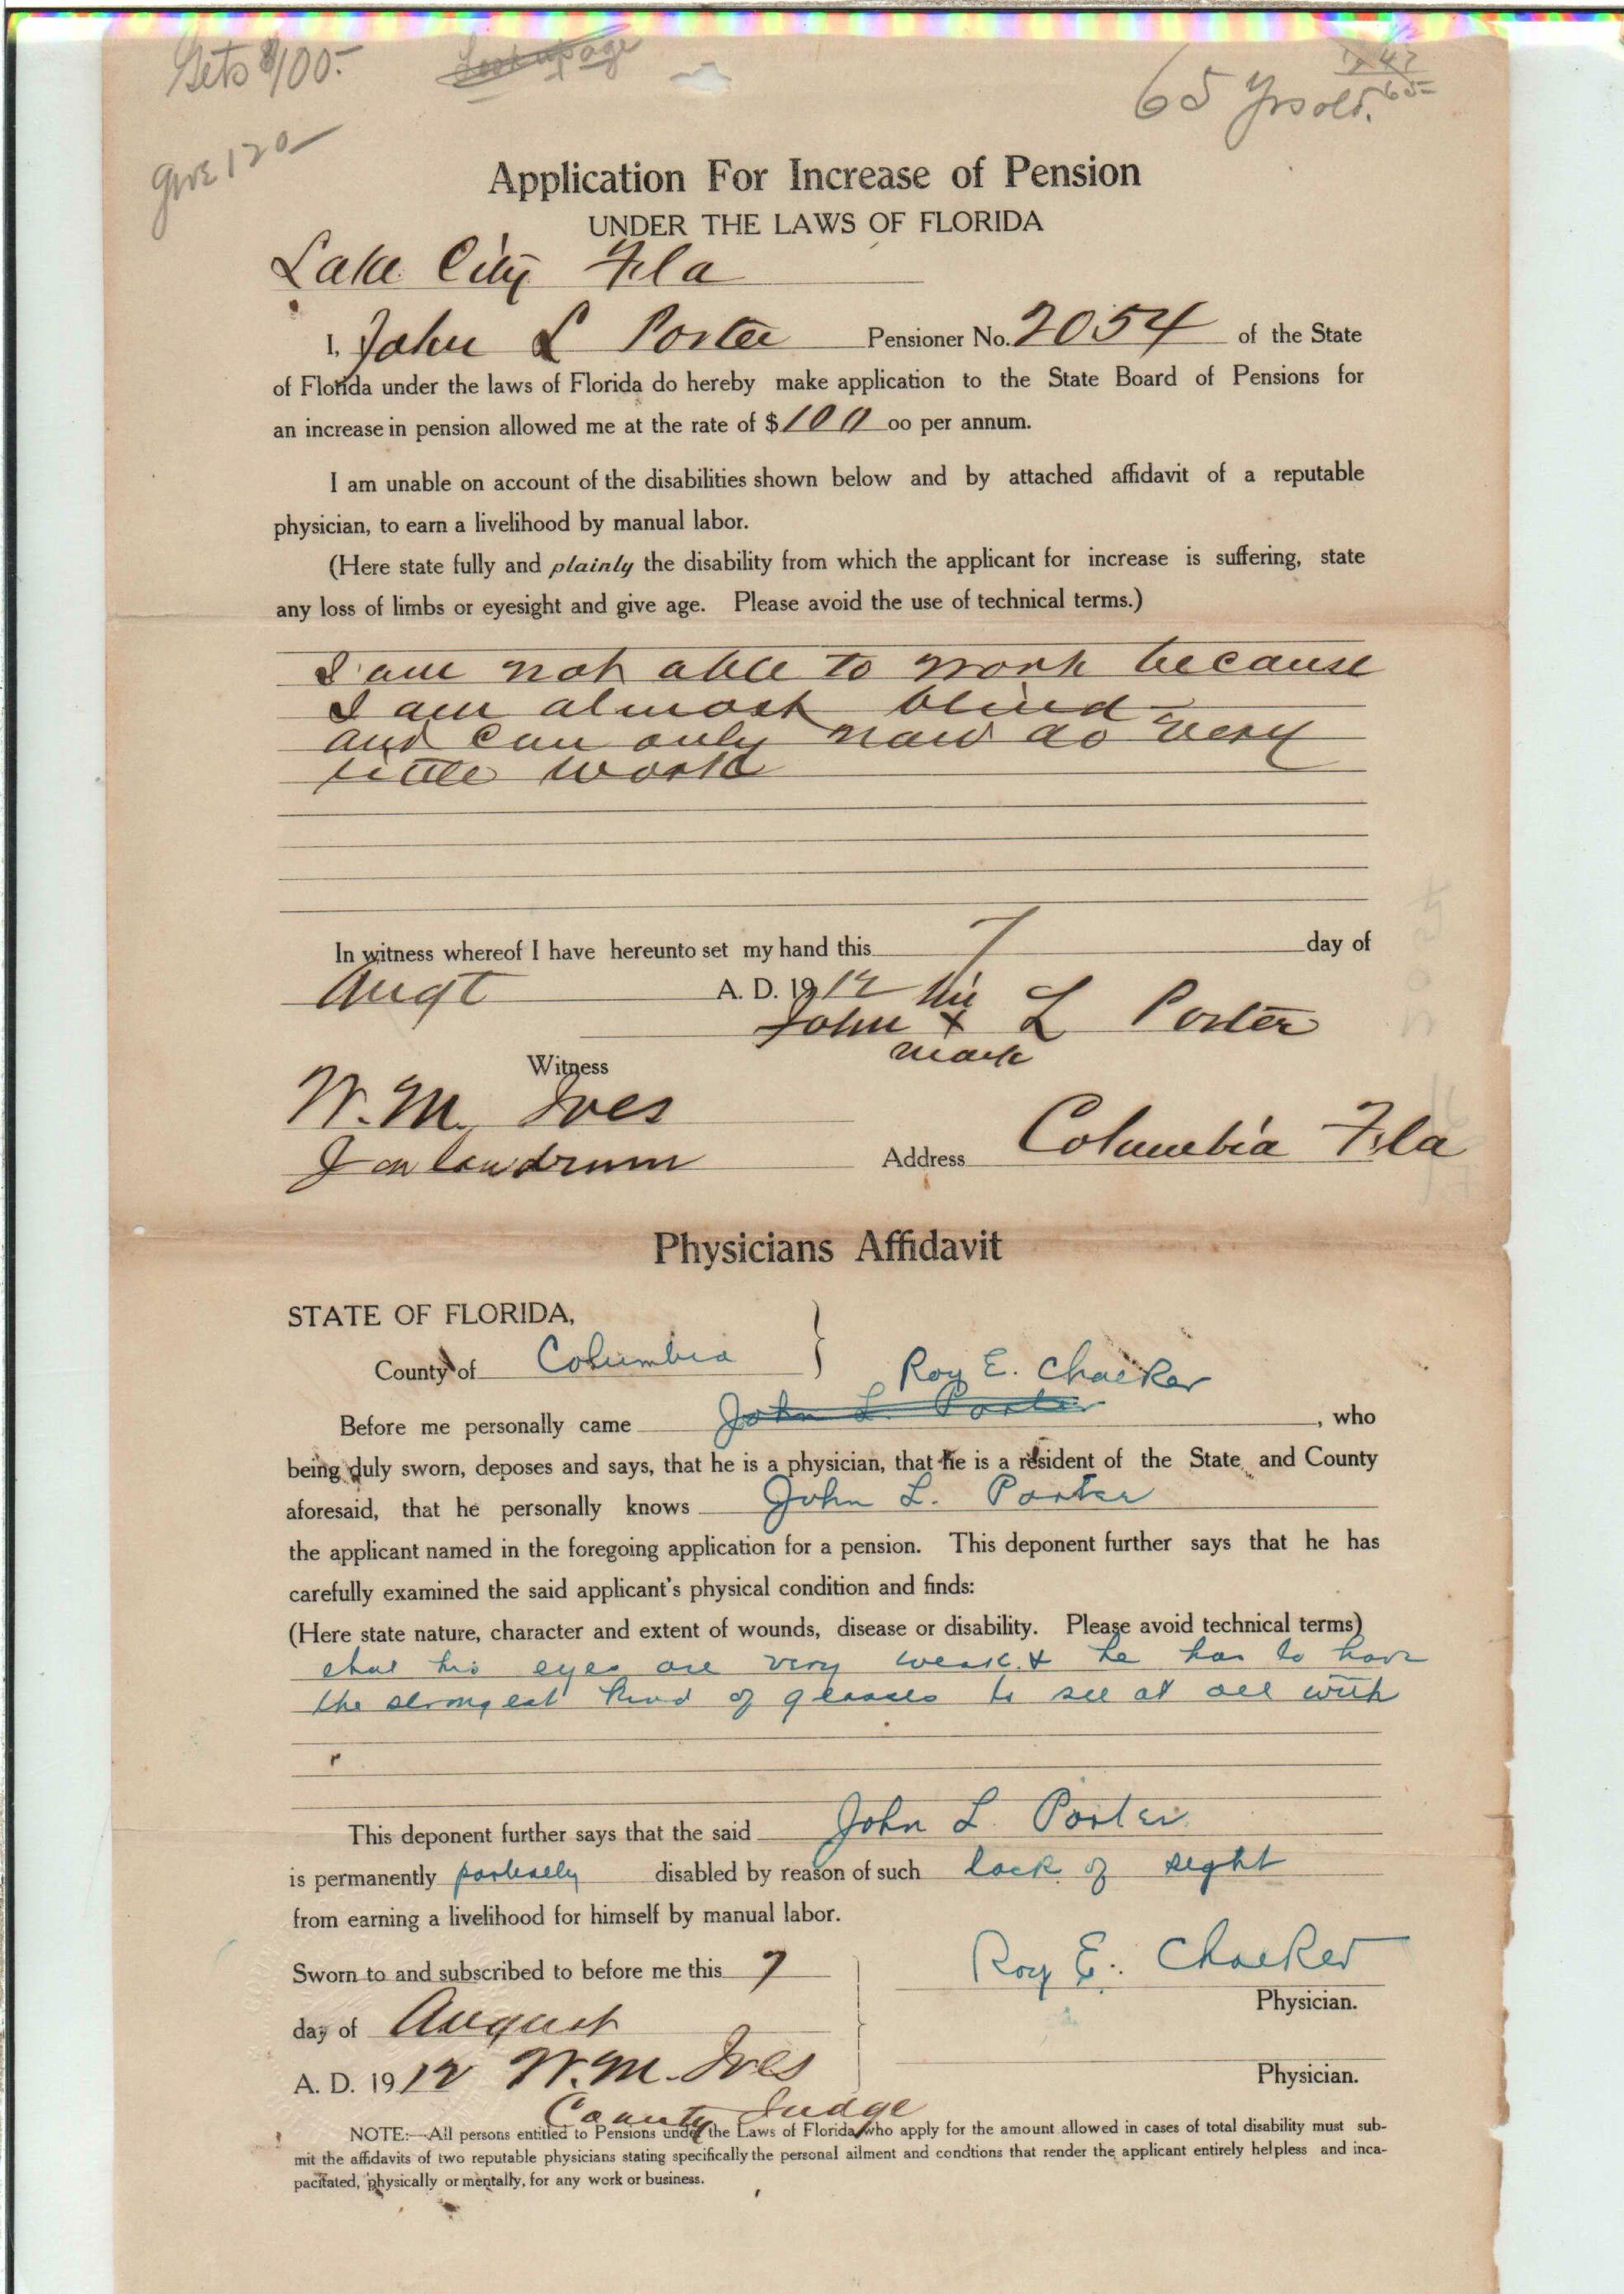 Gets $100.-
Look up age
65 yrs old.
47
65
give 120
Application For Increase of Pension
UNDER THE LAWS OF FLORIDA
Lake City Fla
I, John L Porter Pensioner No. 2054 of the State
of Florida under the laws of Florida do hereby make application to the State Board of Pensions for
an increase in pension allowed me at the rate of $100 00 per annum.
I am unable on account of the disabilities shown below and by attached affidavit of a reputable
physician, to earn a livelihood by manual labor.
(Here state fully and plainly the disability from which the applicant for increase is suffering, state
any loss of limbs or eyesight and give age. Please avoid the use of technical terms.)
I am not able to work because
I am almost blind
and can only now do very
little work
In witness whereof I have hereunto set my hand this 7 day of
Augt A. D. 1912 his
John x L Porter
mark
Witness
W. M. Ives
Address Columbia Fla
Physicians Affidavit
STATE OF FLORIDA,
County of Columbia }
Roy E. Chalker
Before me personally came John L. Porter, who
being duly sworn, deposes and says, that he is a physician, that he is a resident of the State and County
aforesaid, that he personally knows John L. Porter
the applicant named in the foregoing application for a pension. This deponent further says that he has
carefully examined the said applicant's physical condition and finds:
(Here state nature, character and extent of wounds, disease or disability. Please avoid technical terms)
that his eyes are very weak & he has to have
the strongest kind of glasses to see at all with
This deponent further says that the said John L Porter
is permanently partially disabled by reason of such lack of sight
from earning a livelihood for himself by manual labor.
Sworn to and subscribed to before me this 7
Roy E. Chalker
Physician.
day of August
A. D. 1912 W. M. Ives
Physician.
County Judge
NOTE:—All persons entitled to Pensions under the Laws of Florida who apply for the amount allowed in cases of total disability must sub-
mit the affidavits of two reputable physicians stating specifically the personal ailment and condtions that render the applicant entirely helpless and inca-
pacitated, physically or mentally, for any work or business.